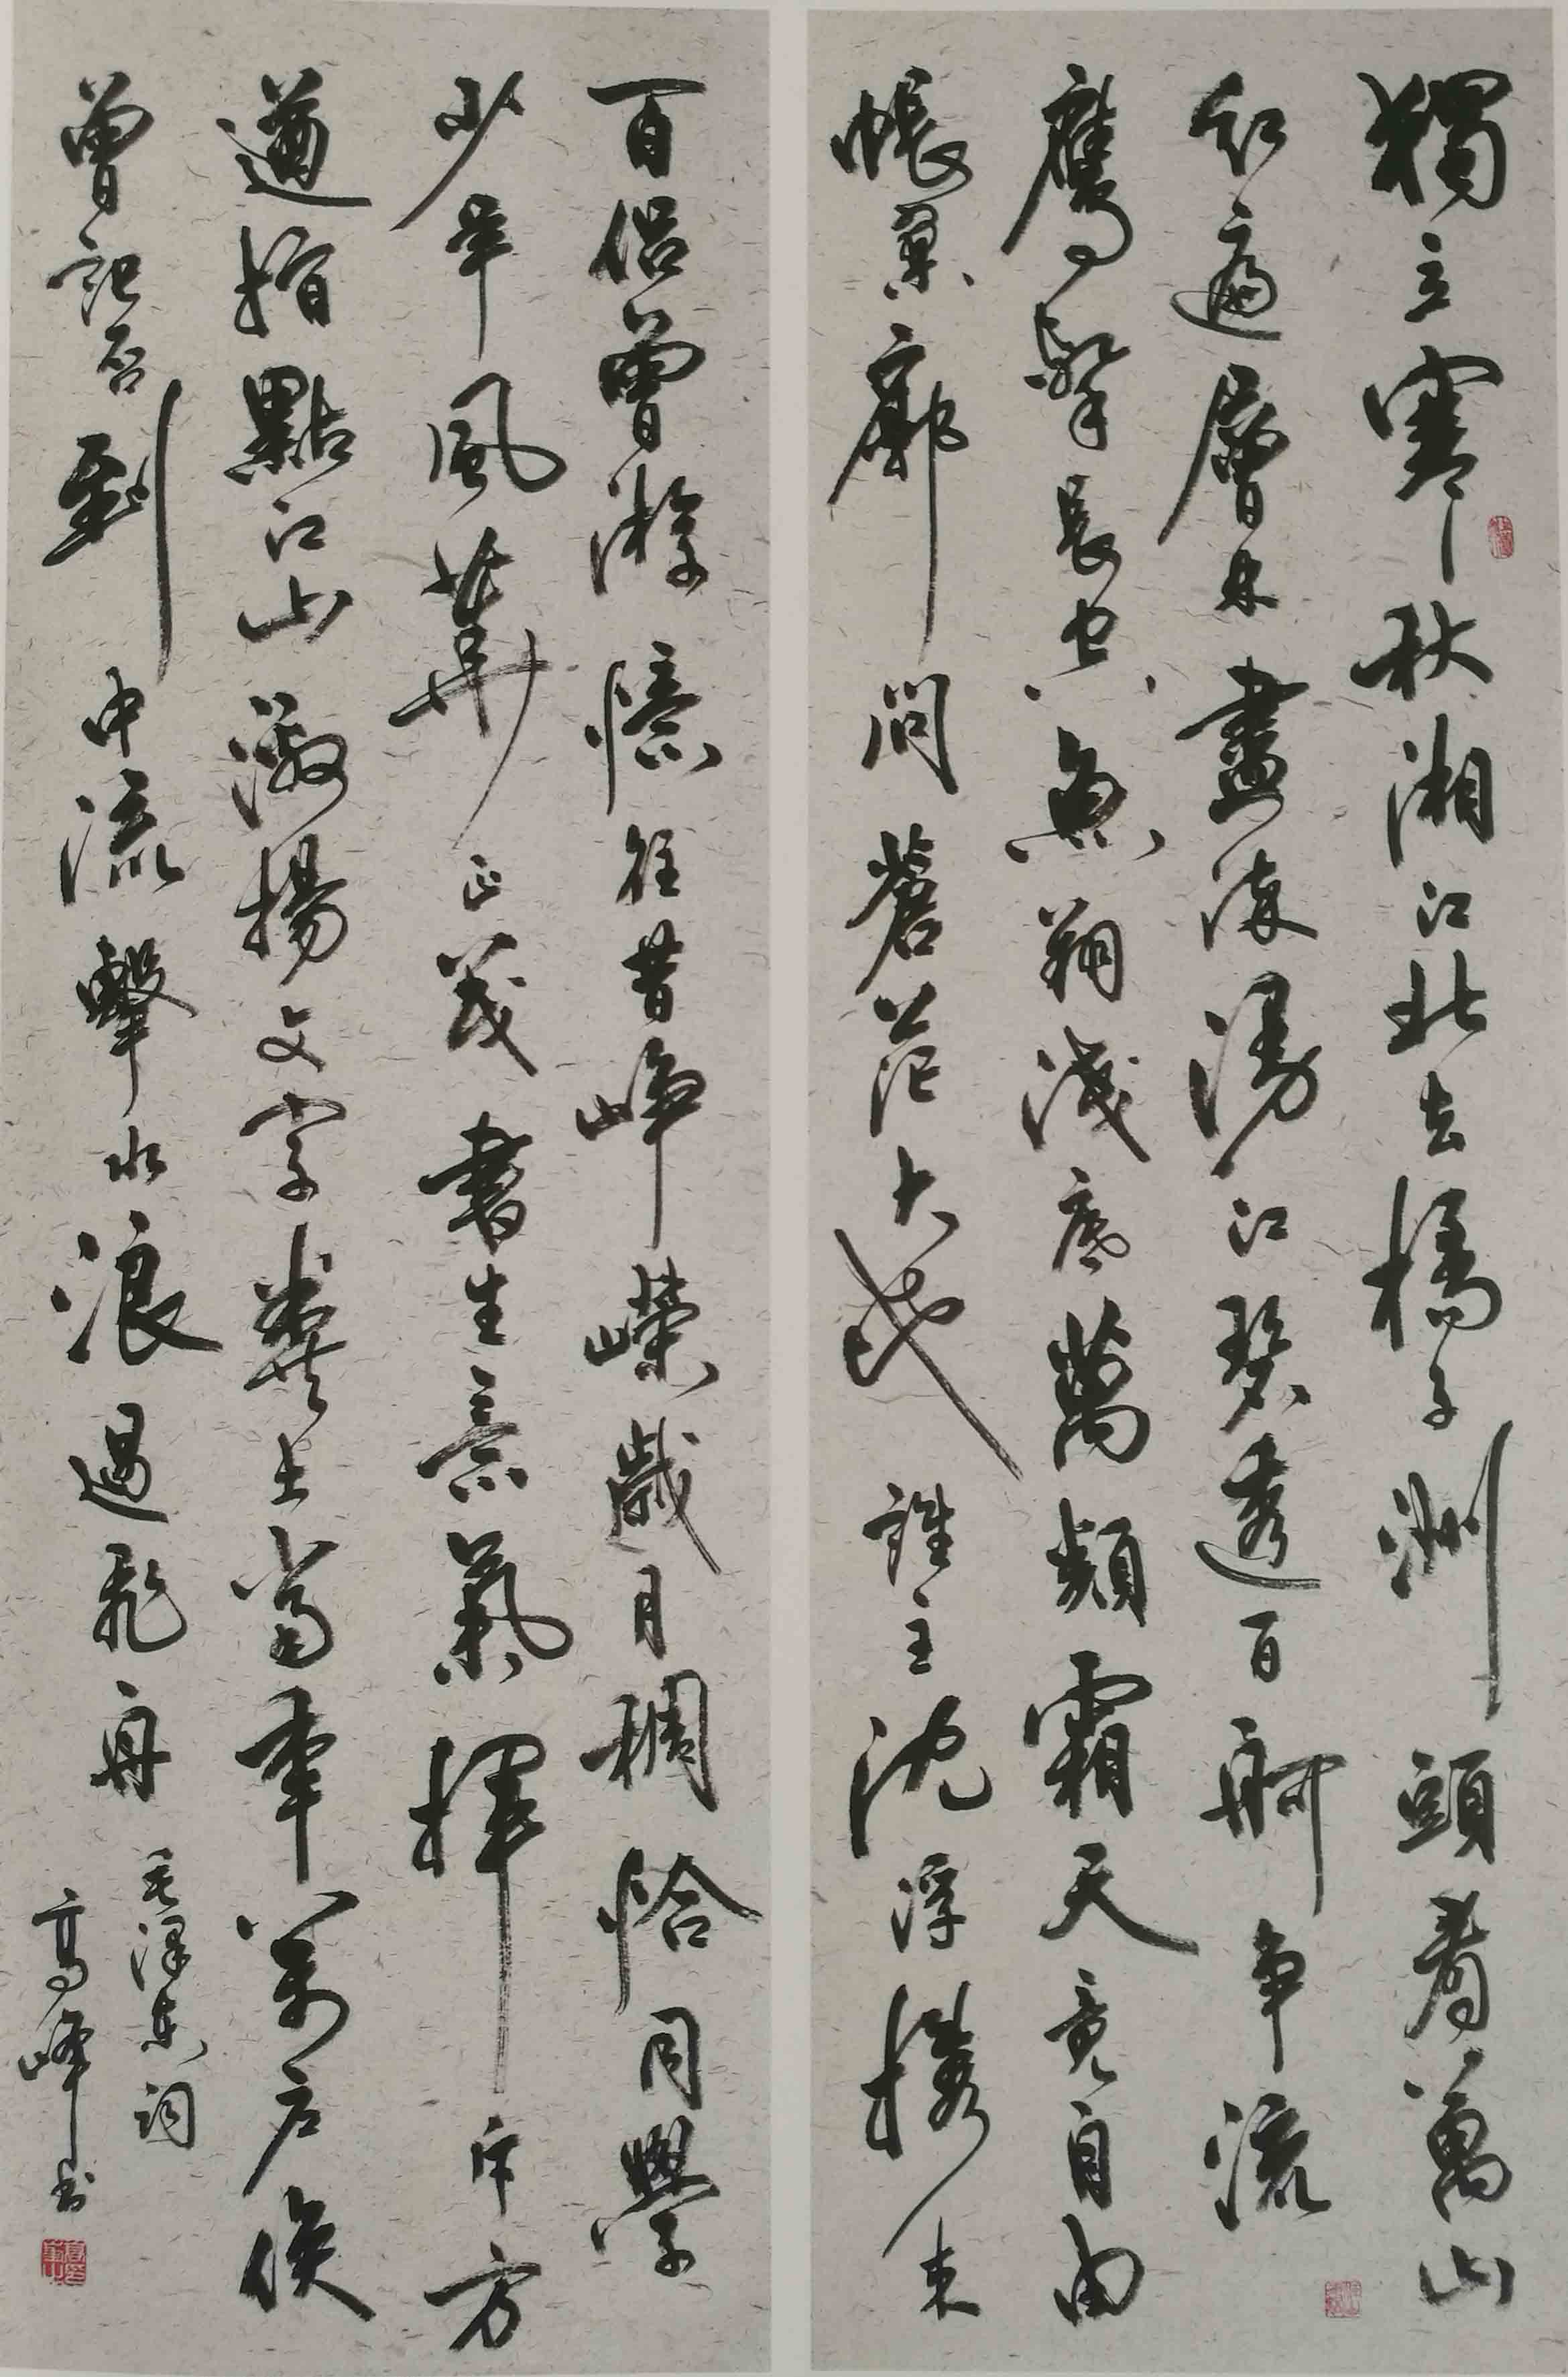 獨立寒秋湘江北去橘子洲頭看萬山
紅遍層林盡染漫江碧透百舸争流
鹰擊長空魚翔淺底萬類霜天竞自由
悵寥廓問蒼茫大地誰主沈浮攜来
百侣曾游憶往昔峥嶸歲月稠恰同學
少年風華正茂書生意氣揮斥方
遒指點江山激揚文字糞土當年万户侯
曾記否到中流擊水浪遏飛舟
毛澤东詞
高峰书